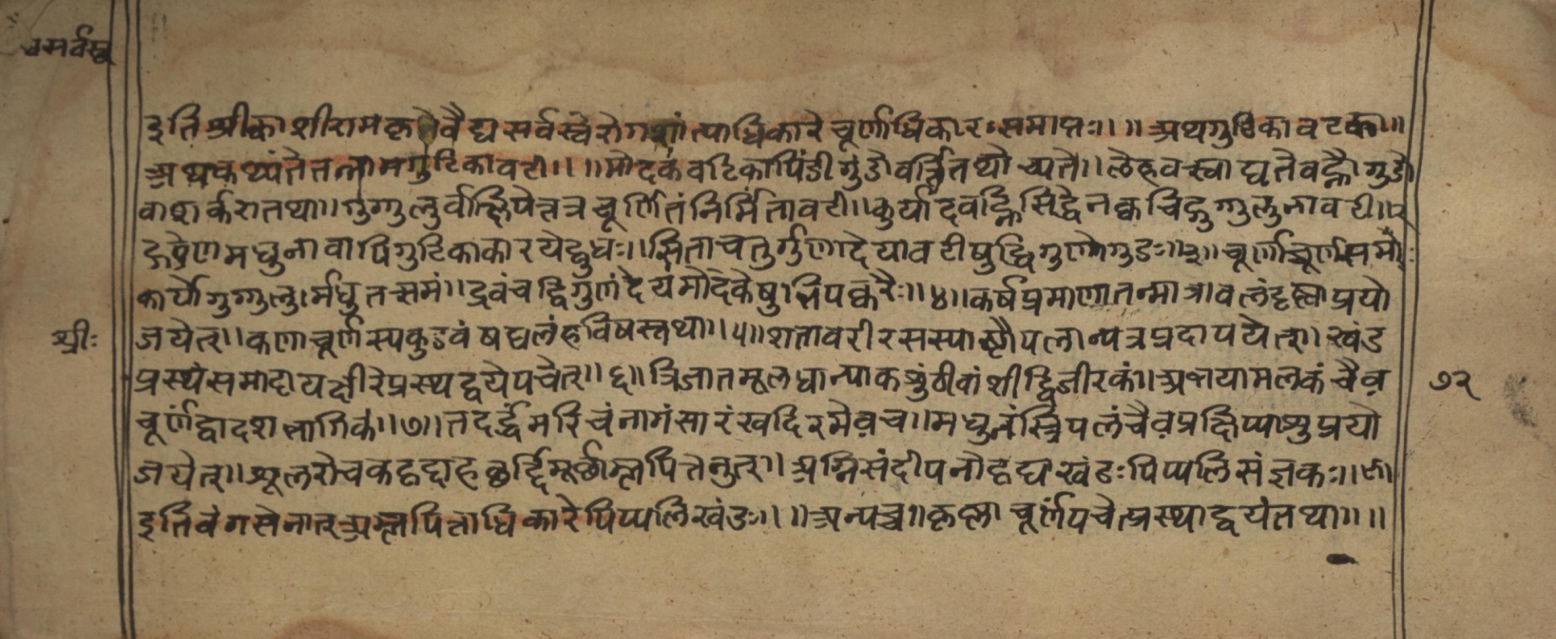 वसर्वस्व
इति श्रीकाशीरामकृतेवैद्यसर्वस्वेरोगशांत्याधिकारेचूर्णाधिकारःसमाप्तः॥ ॥अथगुटिकावटका॥
अथकथ्यंतेतन्नामगुटिकावटी॥ ॥मोदकंवटिकापिंडीगुडोवर्त्तितथोच्यते॥लेहवत्स्वाद्यतेवह्नौगुडो
वाशर्करातथा॥गुग्गुलुर्वाक्षिपेत्तत्रचूर्णितंनिर्मितावटी॥कुर्यादवह्निसिद्धेनक्वचिद्गुग्गुलुनावटी॥२
द्रवेणमधुनावापिगुटिकाकारयेद्बुधः॥सिताचतुर्गुणादेयावटीषुद्विगुणोगुडः॥३॥चूर्णाच्चूर्णसमोः
कार्योगुग्गुलु।र्मधुतत्समं॥द्रवंचद्विगुणंदेयंमोदकेषुभिषक्वरैः॥४॥कर्षप्रमाणातन्मात्राबलंदृष्ट्वाप्रयो
श्रीः
जयेत्॥कणाचूर्णस्यकुडवंषट्पलंहविषस्तथा॥५॥शतावरीरसस्याष्टौपलान्यत्रप्रदापयेत्॥खंड
प्रस्थंसमादायक्षीरेप्रस्थद्वयेपचेत्॥६॥त्रिजातमूलधान्याकशुंठीवांशीद्विजीरकं॥अभयामलकंचैव
७२
चूर्णंद्वादशभागिकं॥७॥तदर्द्धंमरिचंनागंसारंखदिरमेवच॥मधुनंस्त्रिपलंचैवप्रक्षिप्याशुप्रयो
जयेत्॥शूलरोचकहृद्दाहछर्द्दिमूर्छाम्लपित्तनुत्॥अग्निसंदीपनोहृद्यखंडःपिप्पलिसंज्ञकः॥८॥
इतिवंगसेनात्अम्लपित्ताधिकारेपिप्पलिखंडः॥ ॥अन्यच्च॥कृष्णाचूर्णंपचेत्प्रस्थाद्वयंतथा॥॥